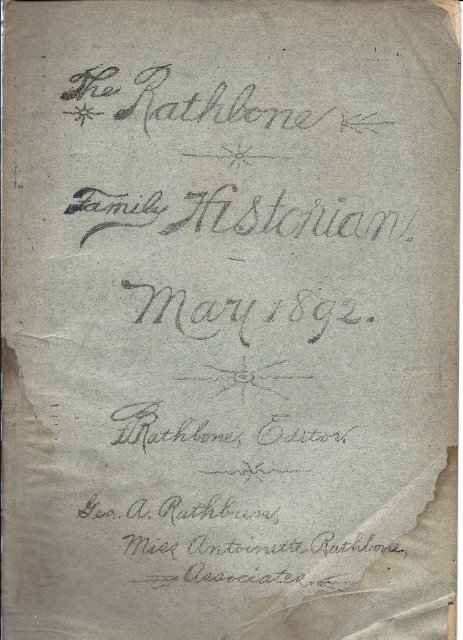 The Rathbone
Family Historian.
May 1892.
Rathbone, Editor.
Geo. A. Rathbun,
Miss Antoinette Rathbone,
Associates.